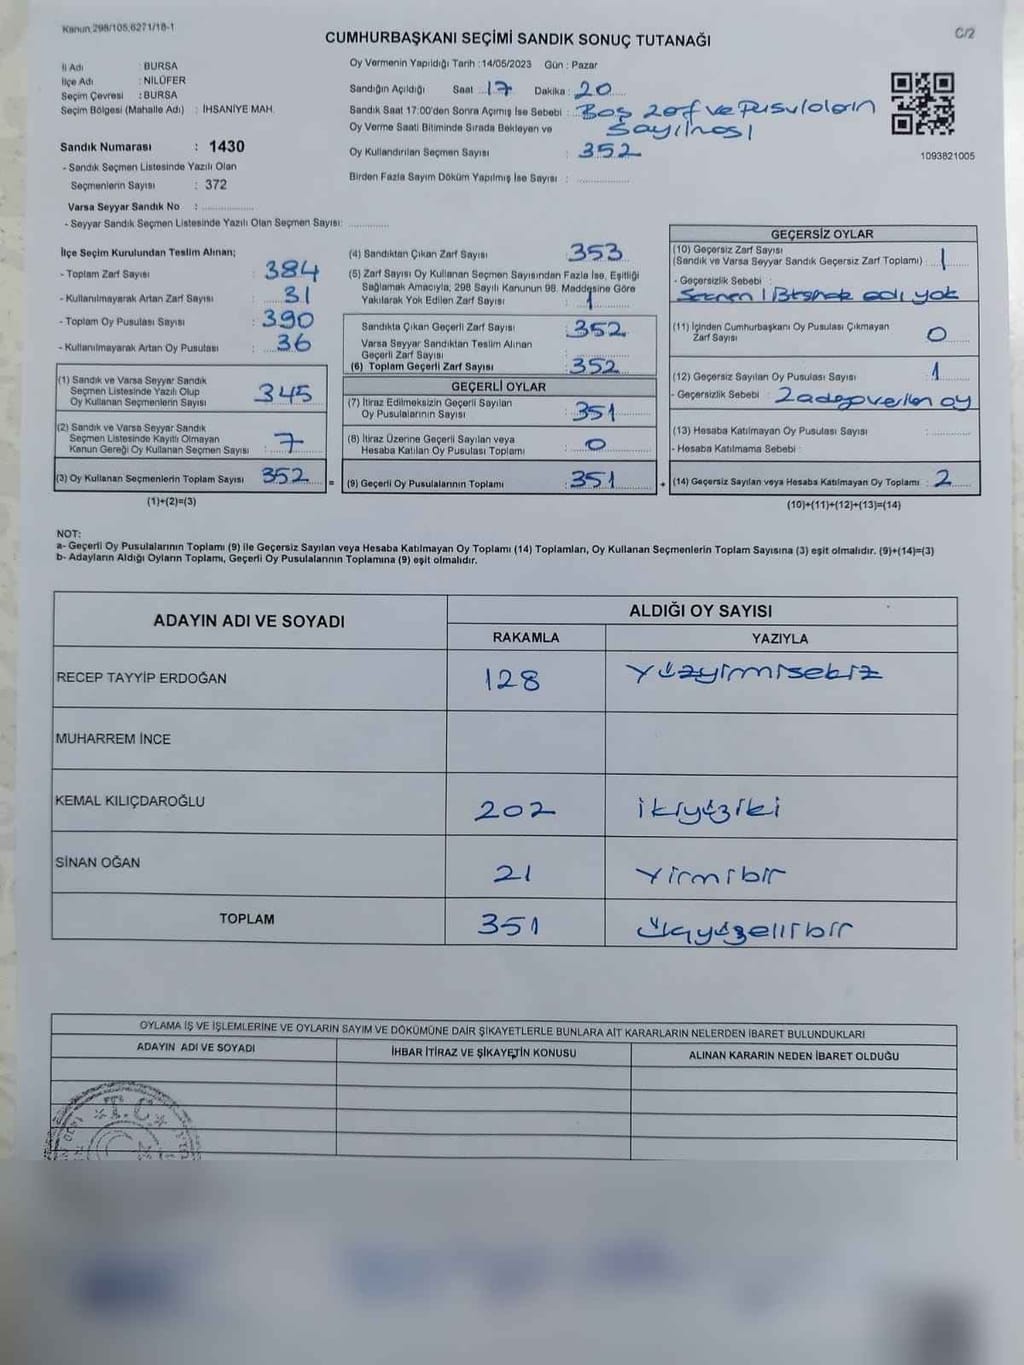 Kanun,298/105,6271/18-1
C/2
CUMHURBAŞKANI SEÇİMİ SANDIK SONUÇ TUTANAĞI
İl Adı : BURSA
İlçe Adı : NİLÜFER
Seçim Çevresi : BURSA
Seçim Bölgesi (Mahalle Adı) : İHSANİYE MAH.
Sandık Numarası : 1430
- Sandık Seçmen Listesinde Yazılı Olan
Seçmenlerin Sayısı : 372
Varsa Seyyar Sandık No :
- Seyyar Sandık Seçmen Listesinde Yazılı Olan Seçmen Sayısı:
Oy Vermenin Yapıldığı Tarih : 14/05/2023 Gün : Pazar
Sandığın Açıldığı Saat 17 Dakika : 20
Sandık Saat 17:00'den Sonra Açımış İse Sebebi : Boş zarf ve Pusulaların
Oy Verme Saati Bitiminde Sırada Bekleyen ve Sayılması
Oy Kullandırılan Seçmen Sayısı : 352
Birden Fazla Sayım Döküm Yapılmış İse Sayısı :
1093821005
İlçe Seçim Kurulundan Teslim Alınan;
- Toplam Zarf Sayısı : 384
- Kullanılmayarak Artan Zarf Sayısı : 31
- Toplam Oy Pusulası Sayısı : 390
- Kullanılmayarak Artan Oy Pusulası : 36
(1) Sandık ve Varsa Seyyar Sandık
Seçmen Listesinde Yazılı Olup
Oy Kullanan Seçmenlerin Sayısı : 345
(2) Sandık ve Varsa Seyyar Sandık
Seçmen Listesinde Kayıtlı Olmayan
Kanun Gereği Oy Kullanan Seçmen Sayısı : 7
(3) Oy Kullanan Seçmenlerin Toplam Sayısı 352 =
(1)+(2)=(3)
(4) Sandıktan Çıkan Zarf Sayısı : 353
(5) Zarf Sayısı Oy Kullanan Seçmen Sayısından Fazla İse, Eşitliği
Sağlamak Amacıyla, 298 Sayılı Kanunun 98. Maddesine Göre
Yakılarak Yok Edilen Zarf Sayısı : 1
Sandıkta Çıkan Geçerli Zarf Sayısı : 352
Varsa Seyyar Sandıktan Teslim Alınan
Geçerli Zarf Sayısı :
(6) Toplam Geçerli Zarf Sayısı : 352
GEÇERLİ OYLAR
(7) İtiraz Edilmeksizin Geçerli Sayılan
Oy Pusulalarının Sayısı : 351
(8) İtiraz Üzerine Geçerli Sayılan veya
Hesaba Katılan Oy Pusulası Toplamı : 0
(9) Geçerli Oy Pusulalarının Toplamı : 351 +
GEÇERSİZ OYLAR
(10) Geçersiz Zarf Sayısı
(Sandık ve Varsa Seyyar Sandık Geçersiz Zarf Toplamı) : 1
- Geçersizlik Sebebi :
(11) İçinden Cumhurbaşkanı Oy Pusulası Çıkmayan
Zarf Sayısı : 0
(12) Geçersiz Sayılan Oy Pusulası Sayısı : 1
- Geçersizlik Sebebi : 2 adaya verilen oy
(13) Hesaba Katılmayan Oy Pusulası Sayısı :
- Hesaba Katılmama Sebebi :
(14) Geçersiz Sayılan veya Hesaba Katılmayan Oy Toplamı : 2
(10)+(11)+(12)+(13)=(14)
NOT:
a- Geçerli Oy Pusulalarının Toplamı (9) ile Geçersiz Sayılan veya Hesaba Katılmayan Oy Toplamı (14) Toplamları, Oy Kullanan Seçmenlerin Toplam Sayısına (3) eşit olmalıdır. (9)+(14)=(3)
b- Adayların Aldığı Oyların Toplamı, Geçerli Oy Pusulalarının Toplamına (9) eşit olmalıdır.
ADAYIN ADI VE SOYADI
ALDIĞI OY SAYISI
RAKAMLA YAZIYLA
RECEP TAYYİP ERDOĞAN 128 Yüzyirmisekiz
MUHARREM İNCE
KEMAL KILIÇDAROĞLU 202 ikiyüziki
SİNAN OĞAN 21 Yirmibir
TOPLAM 351 üçyüzellibir
OYLAMA İŞ VE İŞLEMLERİNE VE OYLARIN SAYIM VE DÖKÜMÜNE DAİR ŞİKAYETLERLE BUNLARA AİT KARARLARIN NELERDEN İBARET BULUNDUKLARI
ADAYIN ADI VE SOYADI İHBAR İTİRAZ VE ŞİKAYETİN KONUSU ALINAN KARARIN NEDEN İBARET OLDUĞU
T.C.